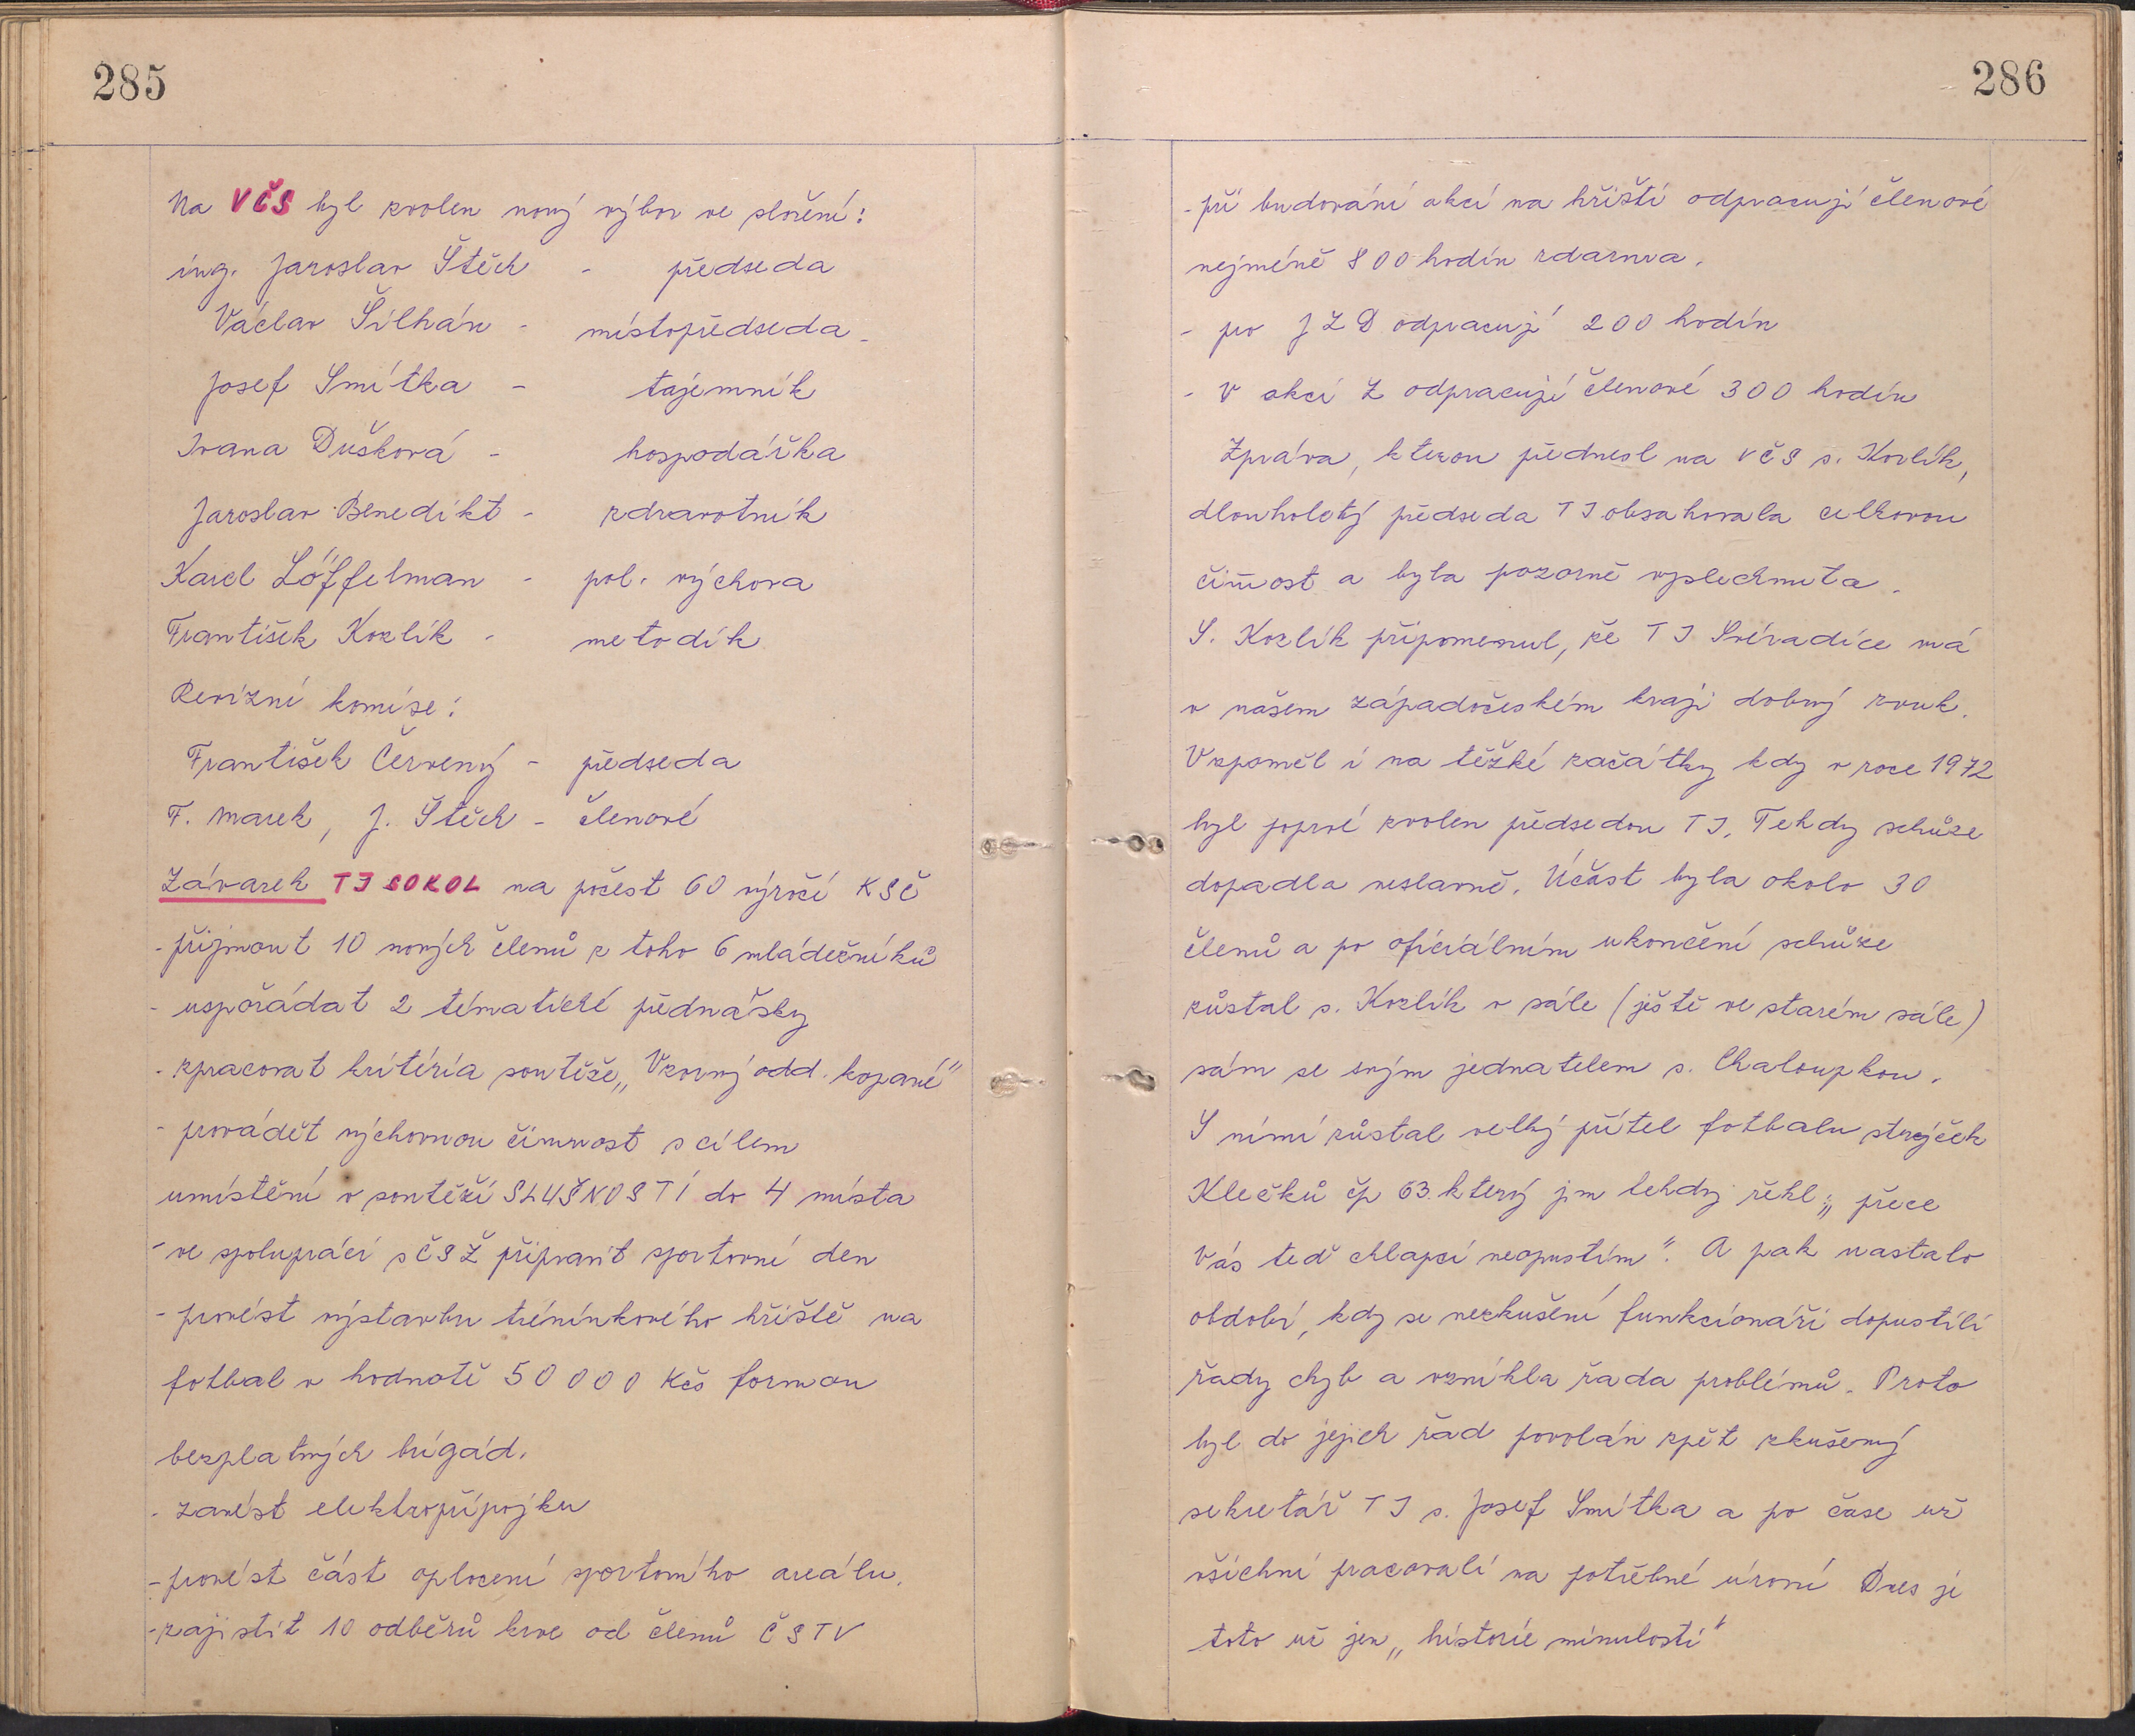 285
Na VČS byl zvolen nový výbor ve složení:
ing. Jaroslav Štěch - předseda
Václav Šilhán - místopředseda
Josef Smítka - tajemník
Ivana Dušková - hospodářka
Jaroslav Benedikt - zdravotník
Karel Löffelman - pol. výchova
František Kozlík - metodik
Revizní komise:
František Červený - předseda
F. Marek, J. Štěch - členové
Závazek TJ SOKOL na počest 60 výročí KSČ
- přijmout 10 nových členů z toho 6 mládežníků
- uspořádat 2 tématické přednášky
- zpracovat kritéria soutěže „Vzorný odd. kopané"
- provádět výchovnou činnost s cílem
umístění v soutěži SLUŠNOSTÍ do 4 místa
- ve spolupráci s ČSŽ připravit sportovní den
- provést výstavbu tréninkového hřiště na
fotbal v hodnotě 50 000 Kčs formou
bezplatných brigád.
- zavést elektropřípojku
- provést část oplocení sportovního areálu.
- zajistit 10 odběrů krve od členů ČSTV
286
- při budování akcí na hřišti odpracují členové
nejméně 800 hodin zdarma.
- pro JZD odpracují 200 hodin
- v akci Z odpracují členové 300 hodin
Zpráva, kterou přednesl na VČS s. Kozlík,
dlouholetý předseda TJ obsahovala celkovou
činnost a byla pozorně vyslechnuta.
S. Kozlík připomenul, že TJ Svéradice má
v našem západočeském kraji dobrý zvuk.
Vzpoměl i na těžké začátky kdy v roce 1972
byl poprvé zvolen předsedou TJ. Tehdy schůze
dopadla neslavně. Účast byla okolo 30
členů a po oficiálním ukončení schůze
zůstal s. Kozlík v sále (ještě ve starém sále)
sám se svým jednatelem s. Chaloupkou.
S nimi zůstal velký přítel fotbalu strejček
Klečků čp 63. který jim tehdy řekl: „přece
Vás teď chlapci neopustím". A pak nastalo
období, kdy se nezkušení funkcionáři dopustili
řady chyb a vznikla řada problémů. Proto
byl do jejich řad povolán zpět zkušený
sekretář TJ s. Josef Smítka a po čase už
všichni pracovali na potřebné úrovni Dnes je
toto už jen „historie minulosti"